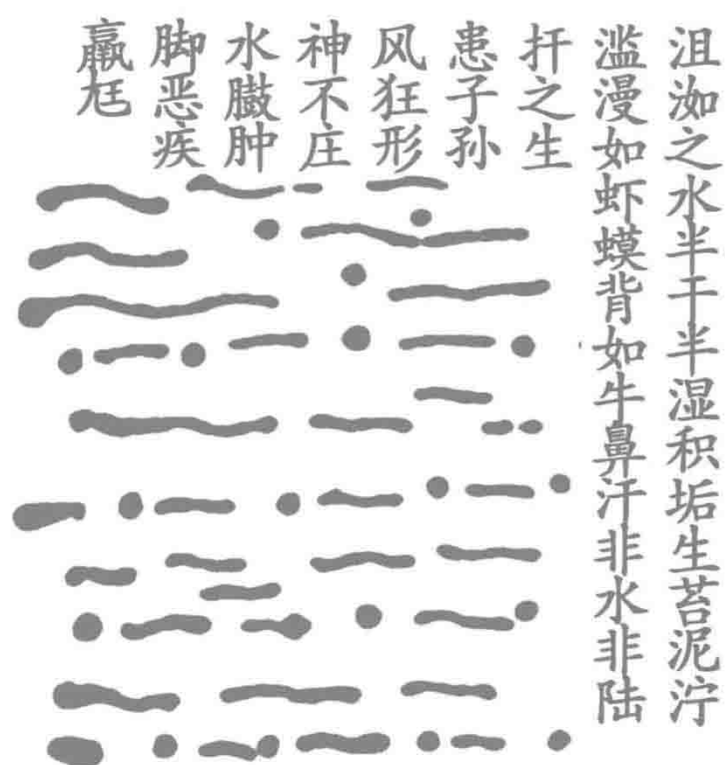 沮洳之水半干半湿积垢生苔泥泞
滥漫如虾蟆背如牛鼻汗非水非陆
扦之生
患子孙
风狂形
神不庄
水臌肿
脚恶疾
羸尪